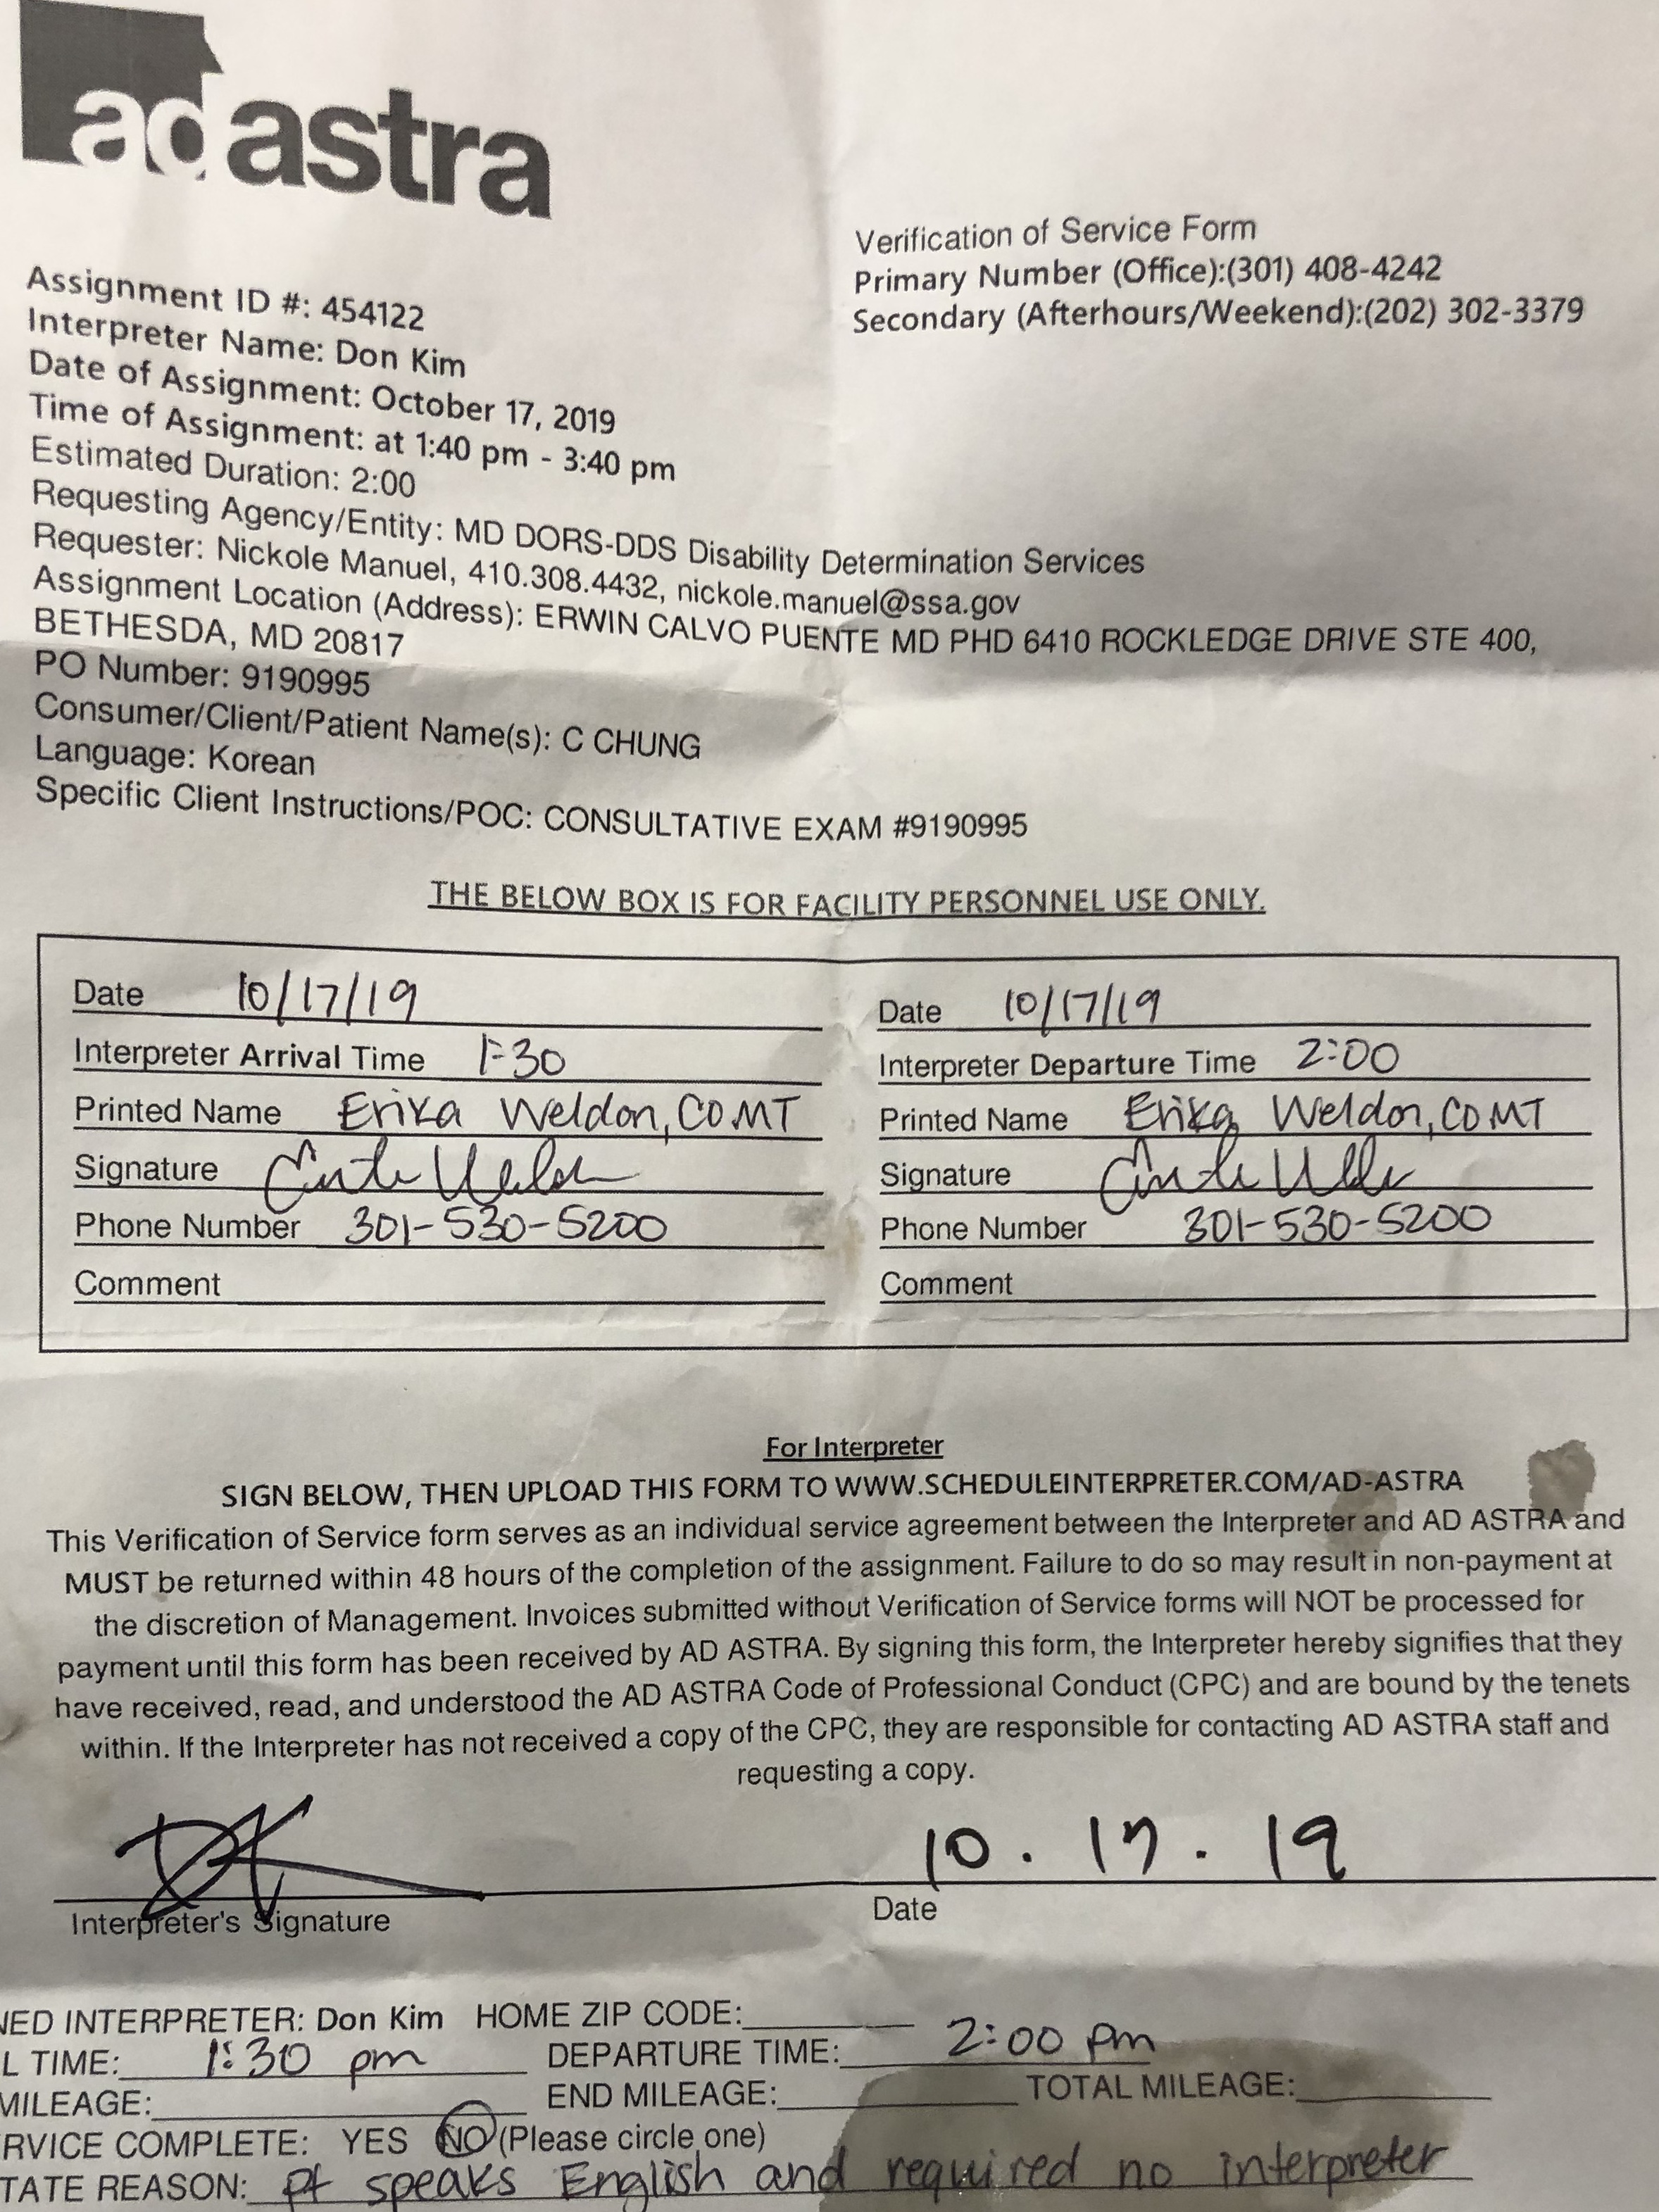 ad astra
Verification of Service Form
Primary Number (Office):(301) 408-4242
Secondary (Afterhours/Weekend):(202) 302-3379
Assignment ID #: 454122
Interpreter Name: Don Kim
Date of Assignment: October 17, 2019
Time of Assignment: at 1:40 pm - 3:40 pm
Estimated Duration: 2:00
Requesting Agency/Entity: MD DORS-DDS Disability Determination Services
Requester: Nickole Manuel, 410.308.4432, nickole.manuel@ssa.gov
Assignment Location (Address): ERWIN CALVO PUENTE MD PHD 6410 ROCKLEDGE DRIVE STE 400,
BETHESDA, MD 20817
PO Number: 9190995
Consumer/Client/Patient Name(s): C CHUNG
Language: Korean
Specific Client Instructions/POC: CONSULTATIVE EXAM #9190995
THE BELOW BOX IS FOR FACILITY PERSONNEL USE ONLY.
Date 10/17/19
Interpreter Arrival Time 1:30
Printed Name Erika Weldon, COMT
Signature
Phone Number 301-530-5200
Comment
Date 10/17/19
Interpreter Departure Time 2:00
Printed Name Erika Weldon, COMT
Signature
Phone Number 301-530-5200
Comment
For Interpreter
SIGN BELOW, THEN UPLOAD THIS FORM TO WWW.SCHEDULEINTERPRETER.COM/AD-ASTRA
This Verification of Service form serves as an individual service agreement between the Interpreter and AD ASTRA and
MUST be returned within 48 hours of the completion of the assignment. Failure to do so may result in non-payment at
the discretion of Management. Invoices submitted without Verification of Service forms will NOT be processed for
payment until this form has been received by AD ASTRA. By signing this form, the Interpreter hereby signifies that they
have received, read, and understood the AD ASTRA Code of Professional Conduct (CPC) and are bound by the tenets
within. If the Interpreter has not received a copy of the CPC, they are responsible for contacting AD ASTRA staff and
requesting a copy.
10.17.19
Interpreter's Signature Date
NED INTERPRETER: Don Kim HOME ZIP CODE:
L TIME: 1:30 pm DEPARTURE TIME: 2:00 pm
MILEAGE: END MILEAGE: TOTAL MILEAGE:
RVICE COMPLETE: YES NO (Please circle one)
TATE REASON: pt speaks English and required no interpreter